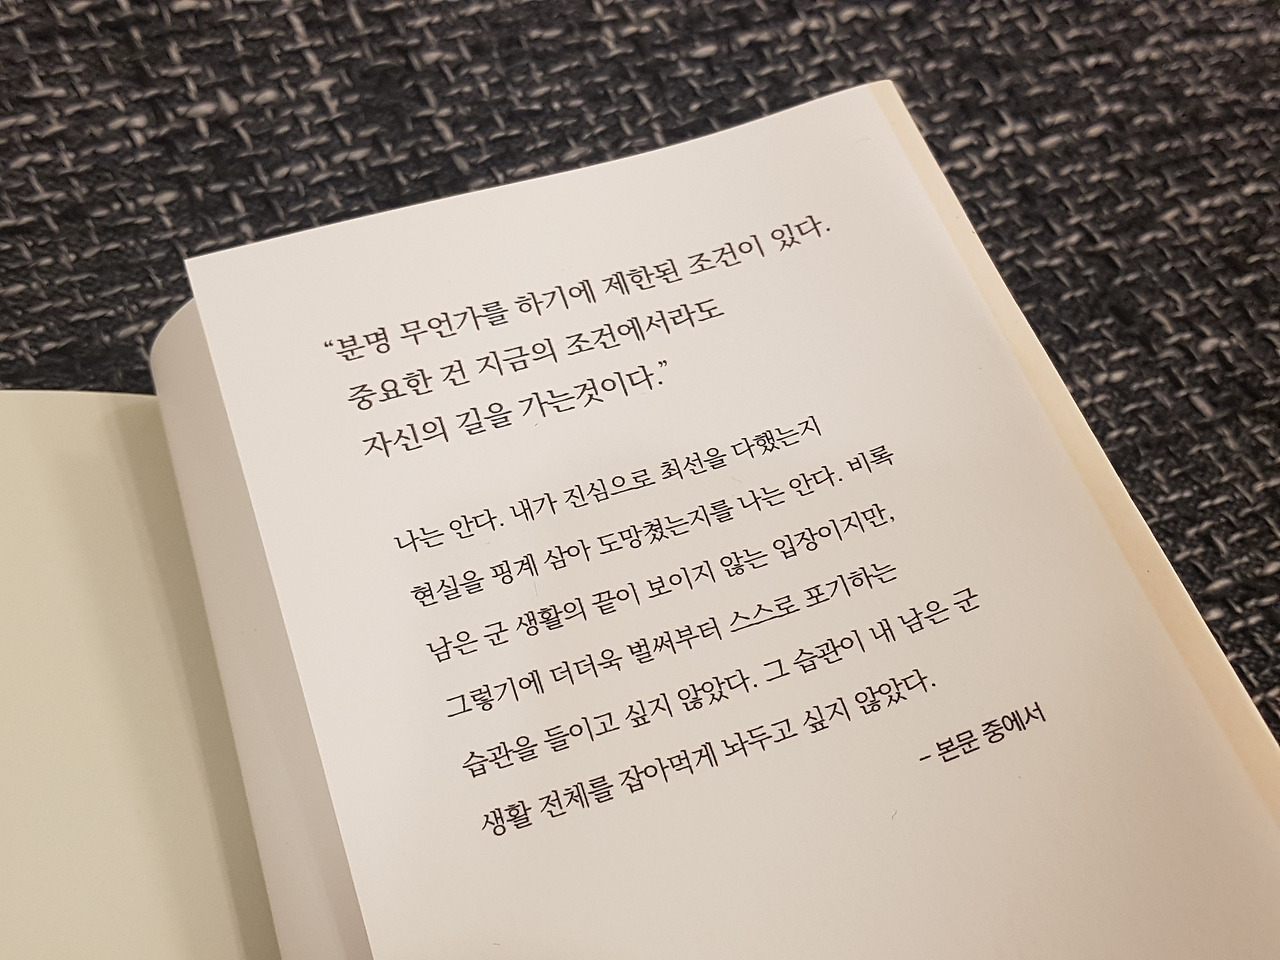 “분명 무언가를 하기에 제한된 조건이 있다.
중요한 건 지금의 조건에서라도
자신의 길을 가는것이다.”
나는 안다. 내가 진심으로 최선을 다했는지
현실을 핑계 삼아 도망쳤는지를 나는 안다. 비록
남은 군 생활의 끝이 보이지 않는 입장이지만,
그렇기에 더더욱 벌써부터 스스로 포기하는
습관을 들이고 싶지 않았다. 그 습관이 내 남은 군
생활 전체를 잡아먹게 놔두고 싶지 않았다.
– 본문 중에서